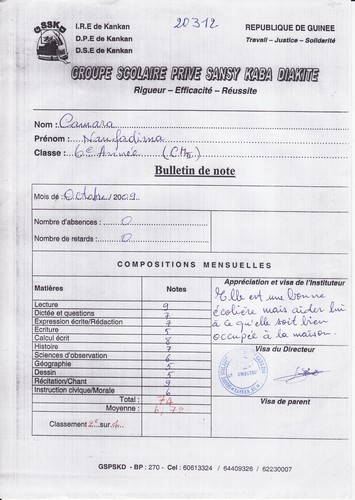 I.R.E de Kankan
D.P.E de Kankan
D.S.E de Kankan
20312
REPUBLIQUE DE GUINEE
Travail – Justice – Solidarité
GROUPE SCOLAIRE PRIVE SANSY KABA DIAKITE
Rigueur – Efficacité – Réussite
Nom : Camara
Prénom : Nanfadima
Classe : 6e Année
Bulletin de note
Mois de Octobre / 2009
Nombre d'absences : 0
Nombre de retards : 0
COMPOSITIONS MENSUELLES
Matières Notes
Lecture 9
Dictée et questions 7
Expression écrite/Rédaction 7
Ecriture 5
Calcul écrit 8
Histoire
Sciences d'observation 6
Géographie 5
Dessin 5
Récitation/Chant 9
Instruction civique/Morale 6
Total : 74
Moyenne :
Classement 2e sur
Appréciation et visa de l'Instituteur
Elle est une bonne
écolière mais aider lui
à ce qu'elle soit bien
occupée à la maison.
Visa du Directeur
Visa de parent
GSPSKD - BP : 270 - Cel : 60613324 / 64409326 / 62230007